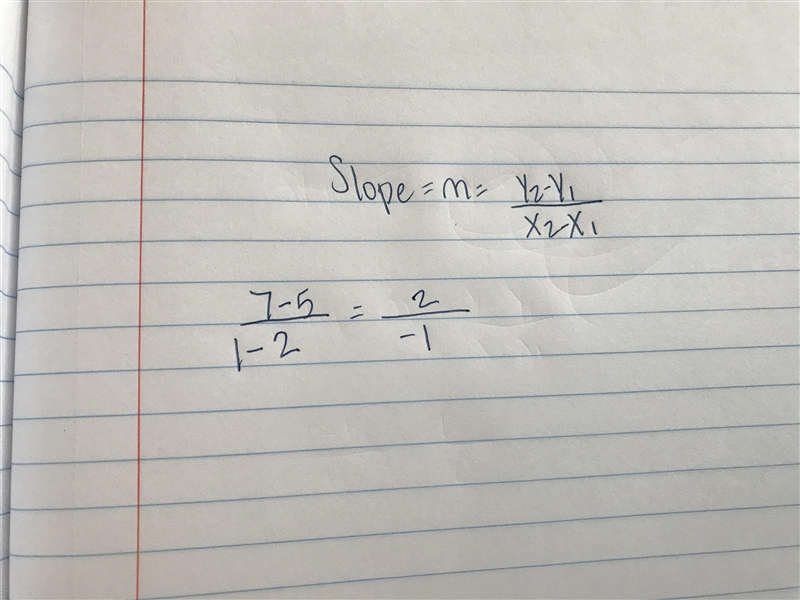 Slope = m = Y₂-Y₁ / X₂-X₁
7-5 / 1-2 = 2 / -1